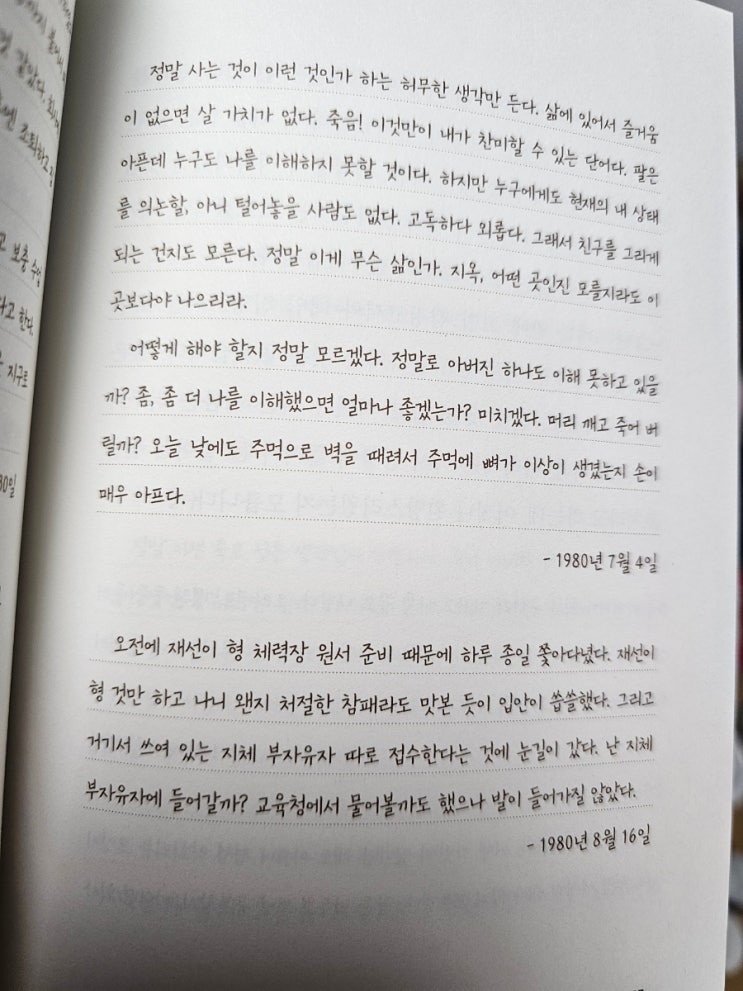 까지
것 같았다.
엔 조퇴하고
고 보충 수업
라고 한다.
지구로
30일
정말 사는 것이 이런 것인가 하는 허무한 생각만 든다. 삶에 있어서 즐거움
이 없으면 살 가치가 없다. 죽음! 이것만이 내가 찬미할 수 있는 단어다. 팔은
아픈데 누구도 나를 이해하지 못할 것이다. 하지만 누구에게도 현재의 내 상태
를 의논할, 아니 털어놓을 사람도 없다. 고독하다 외롭다. 그래서 친구를 그리게
되는 건지도 모른다. 정말 이게 무슨 삶인가. 지옥, 어떤 곳인진 모를지라도 이
곳보다야 나으리라.
어떻게 해야 할지 정말 모르겠다. 정말로 아버진 하나도 이해 못하고 있을
까? 좀, 좀 더 나를 이해했으면 얼마나 좋겠는가? 미치겠다. 머리 깨고 죽어 버
릴까? 오늘 낮에도 주먹으로 벽을 때려서 주먹에 뼈가 이상이 생겼는지 손이
매우 아프다.
- 1980년 7월 4일
오전에 재선이 형 체력장 원서 준비 때문에 하루 종일 쫓아다녔다. 재선이
형 것만 하고 나니 왠지 처절한 참패라도 맛본 듯이 입안이 씁쓸했다. 그리고
거기서 쓰여 있는 지체 부자유자 따로 접수한다는 것에 눈길이 갔다. 난 지체
부자유자에 들어갈까? 교육청에서 물어볼까도 했으나 발이 들어가질 않았다.
- 1980년 8월 16일